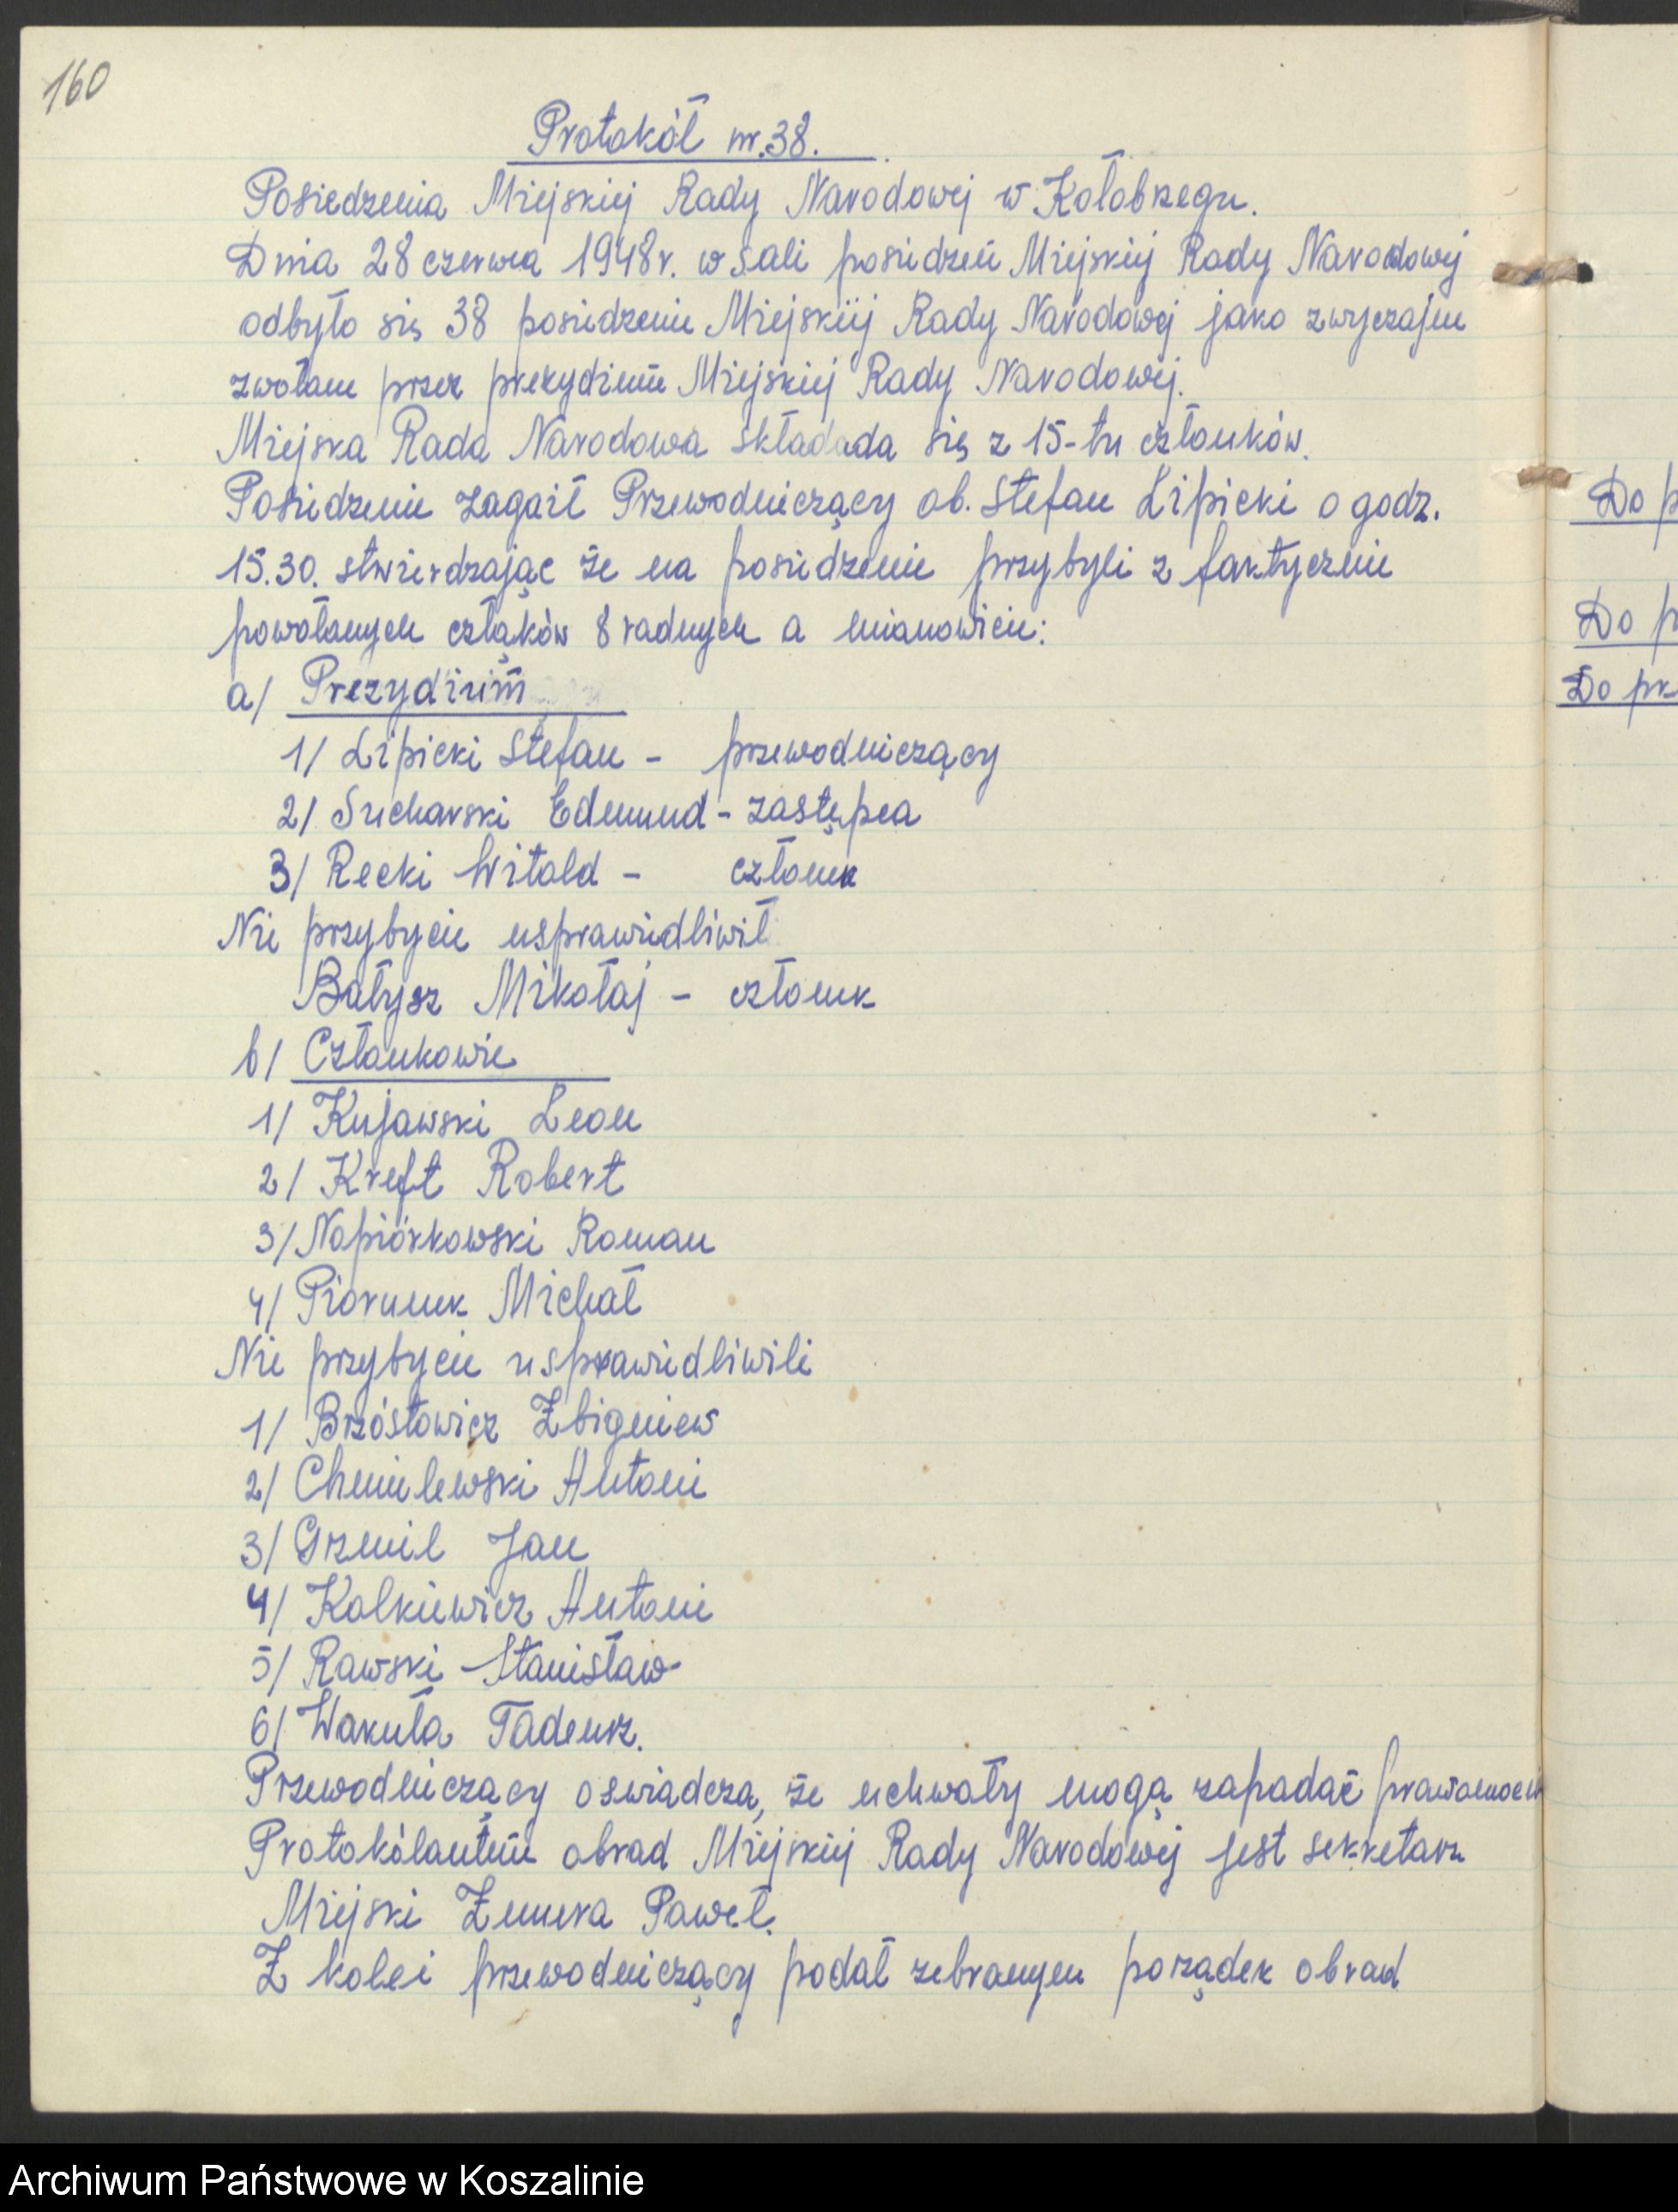 160
Protokół nr. 38.
Posiedzenia Miejskiej Rady Narodowej w Kołobrzegu.
Dnia 28 czerwca 1948 r. w sali posiedzeń Miejskiej Rady Narodowej
odbyło się 38 posiedzenie Miejskiej Rady Narodowej jako zwyczajne
zwołane przez prezydium Miejskiej Rady Narodowej.
Miejska Rada Narodowa składada się z 15-tu członków.
Posiedzenie zagaił Przewodniczący ob. Stefan Lipicki o godz.
15.30. stwierdzając że na posiedzenie przybyli z faktycznie
powołanych cząków 8 radnych a mianowicie:
a/ Prezydium
1/ Lipicki Stefan - przewodniczący
2/ Sucharski Edmund - zastępca
3/ Recki Witold - członek
Nie przybycie usprawiedliwił
Bałysz Mikołaj - członek
b/ Członkowie
1/ Kujawski Leon
2/ Kreft Robert
3/ Napiórkowski Roman
4/ Piorunek Michał
Nie przybycie usprawiedliwili
1/ Brzóstowicz Zbigniew
2/ Chmielewski Antoni
3/ Grzmil Jan
4/ Kalkiewicz Antoni
5/ Rawski Stanisław
6/ Wakuła Tadeusz.
Przewodniczący oświadcza, że uchwały mogą zapadać prawomocnie
Protokólantem obrad Miejskiej Rady Narodowej jest sekretarz
Miejski Żmura Paweł.
Z kolei przewodniczący podał zebranym porządek obrad
Do p
Do p
Do prz
Archiwum Państwowe w Koszalinie